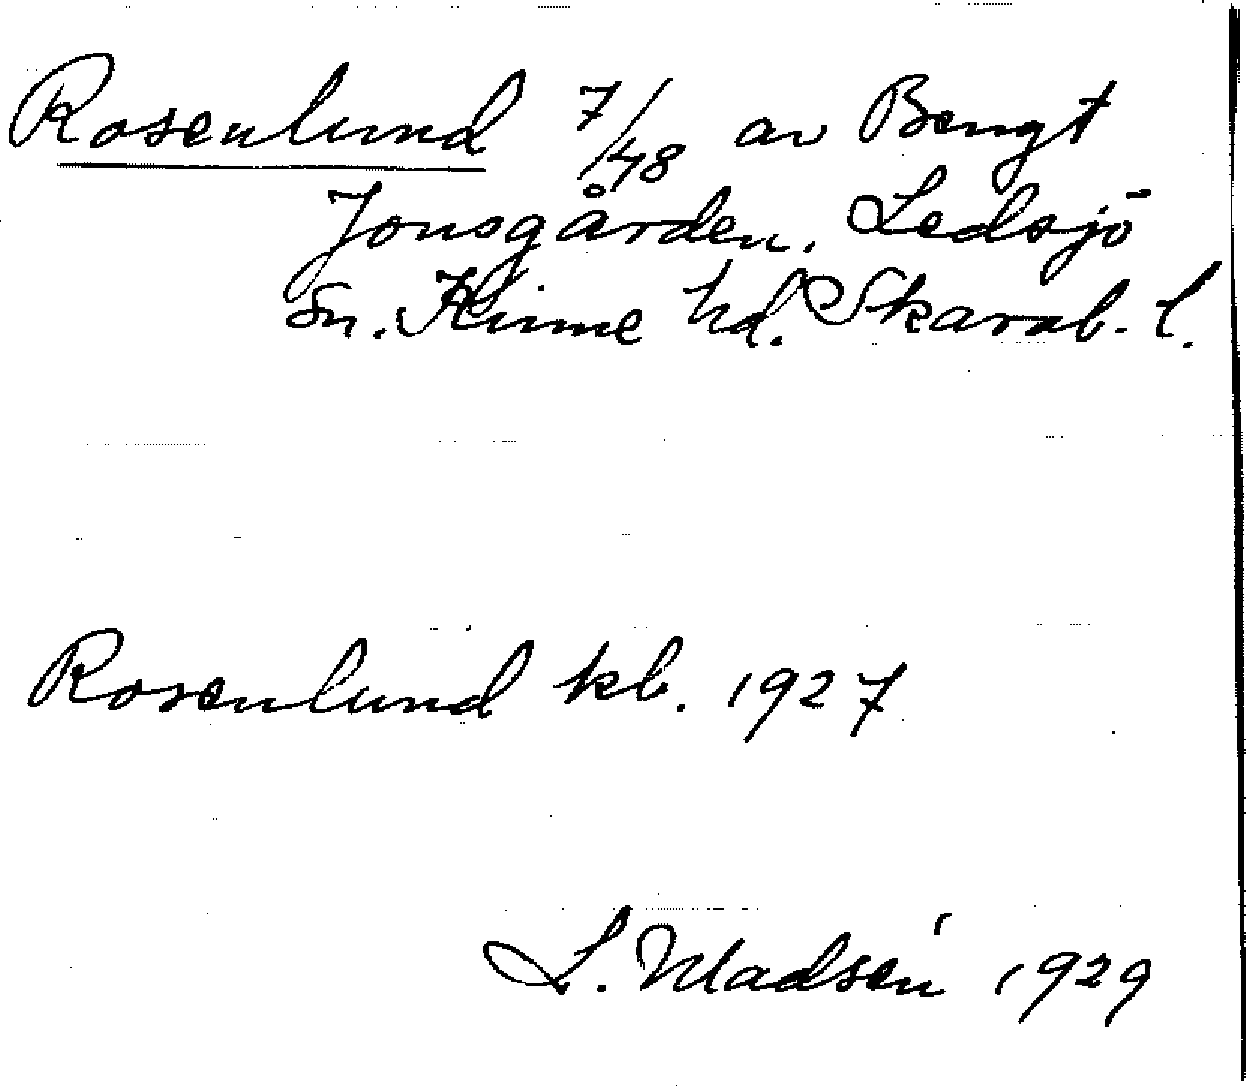 Rosenlund 7/48 av Bengt
Jonsgården. Ledsjö
sn. Kinne hd. Skarab. l.
Rosenlund kb. 1927
L. Madsén 1929